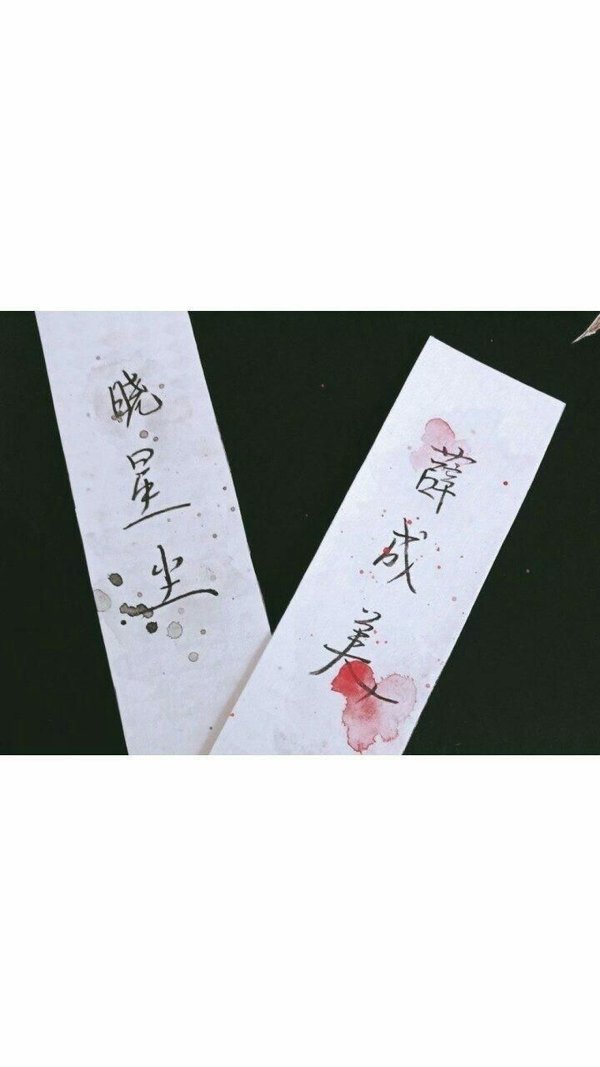 晓星尘
薛成美